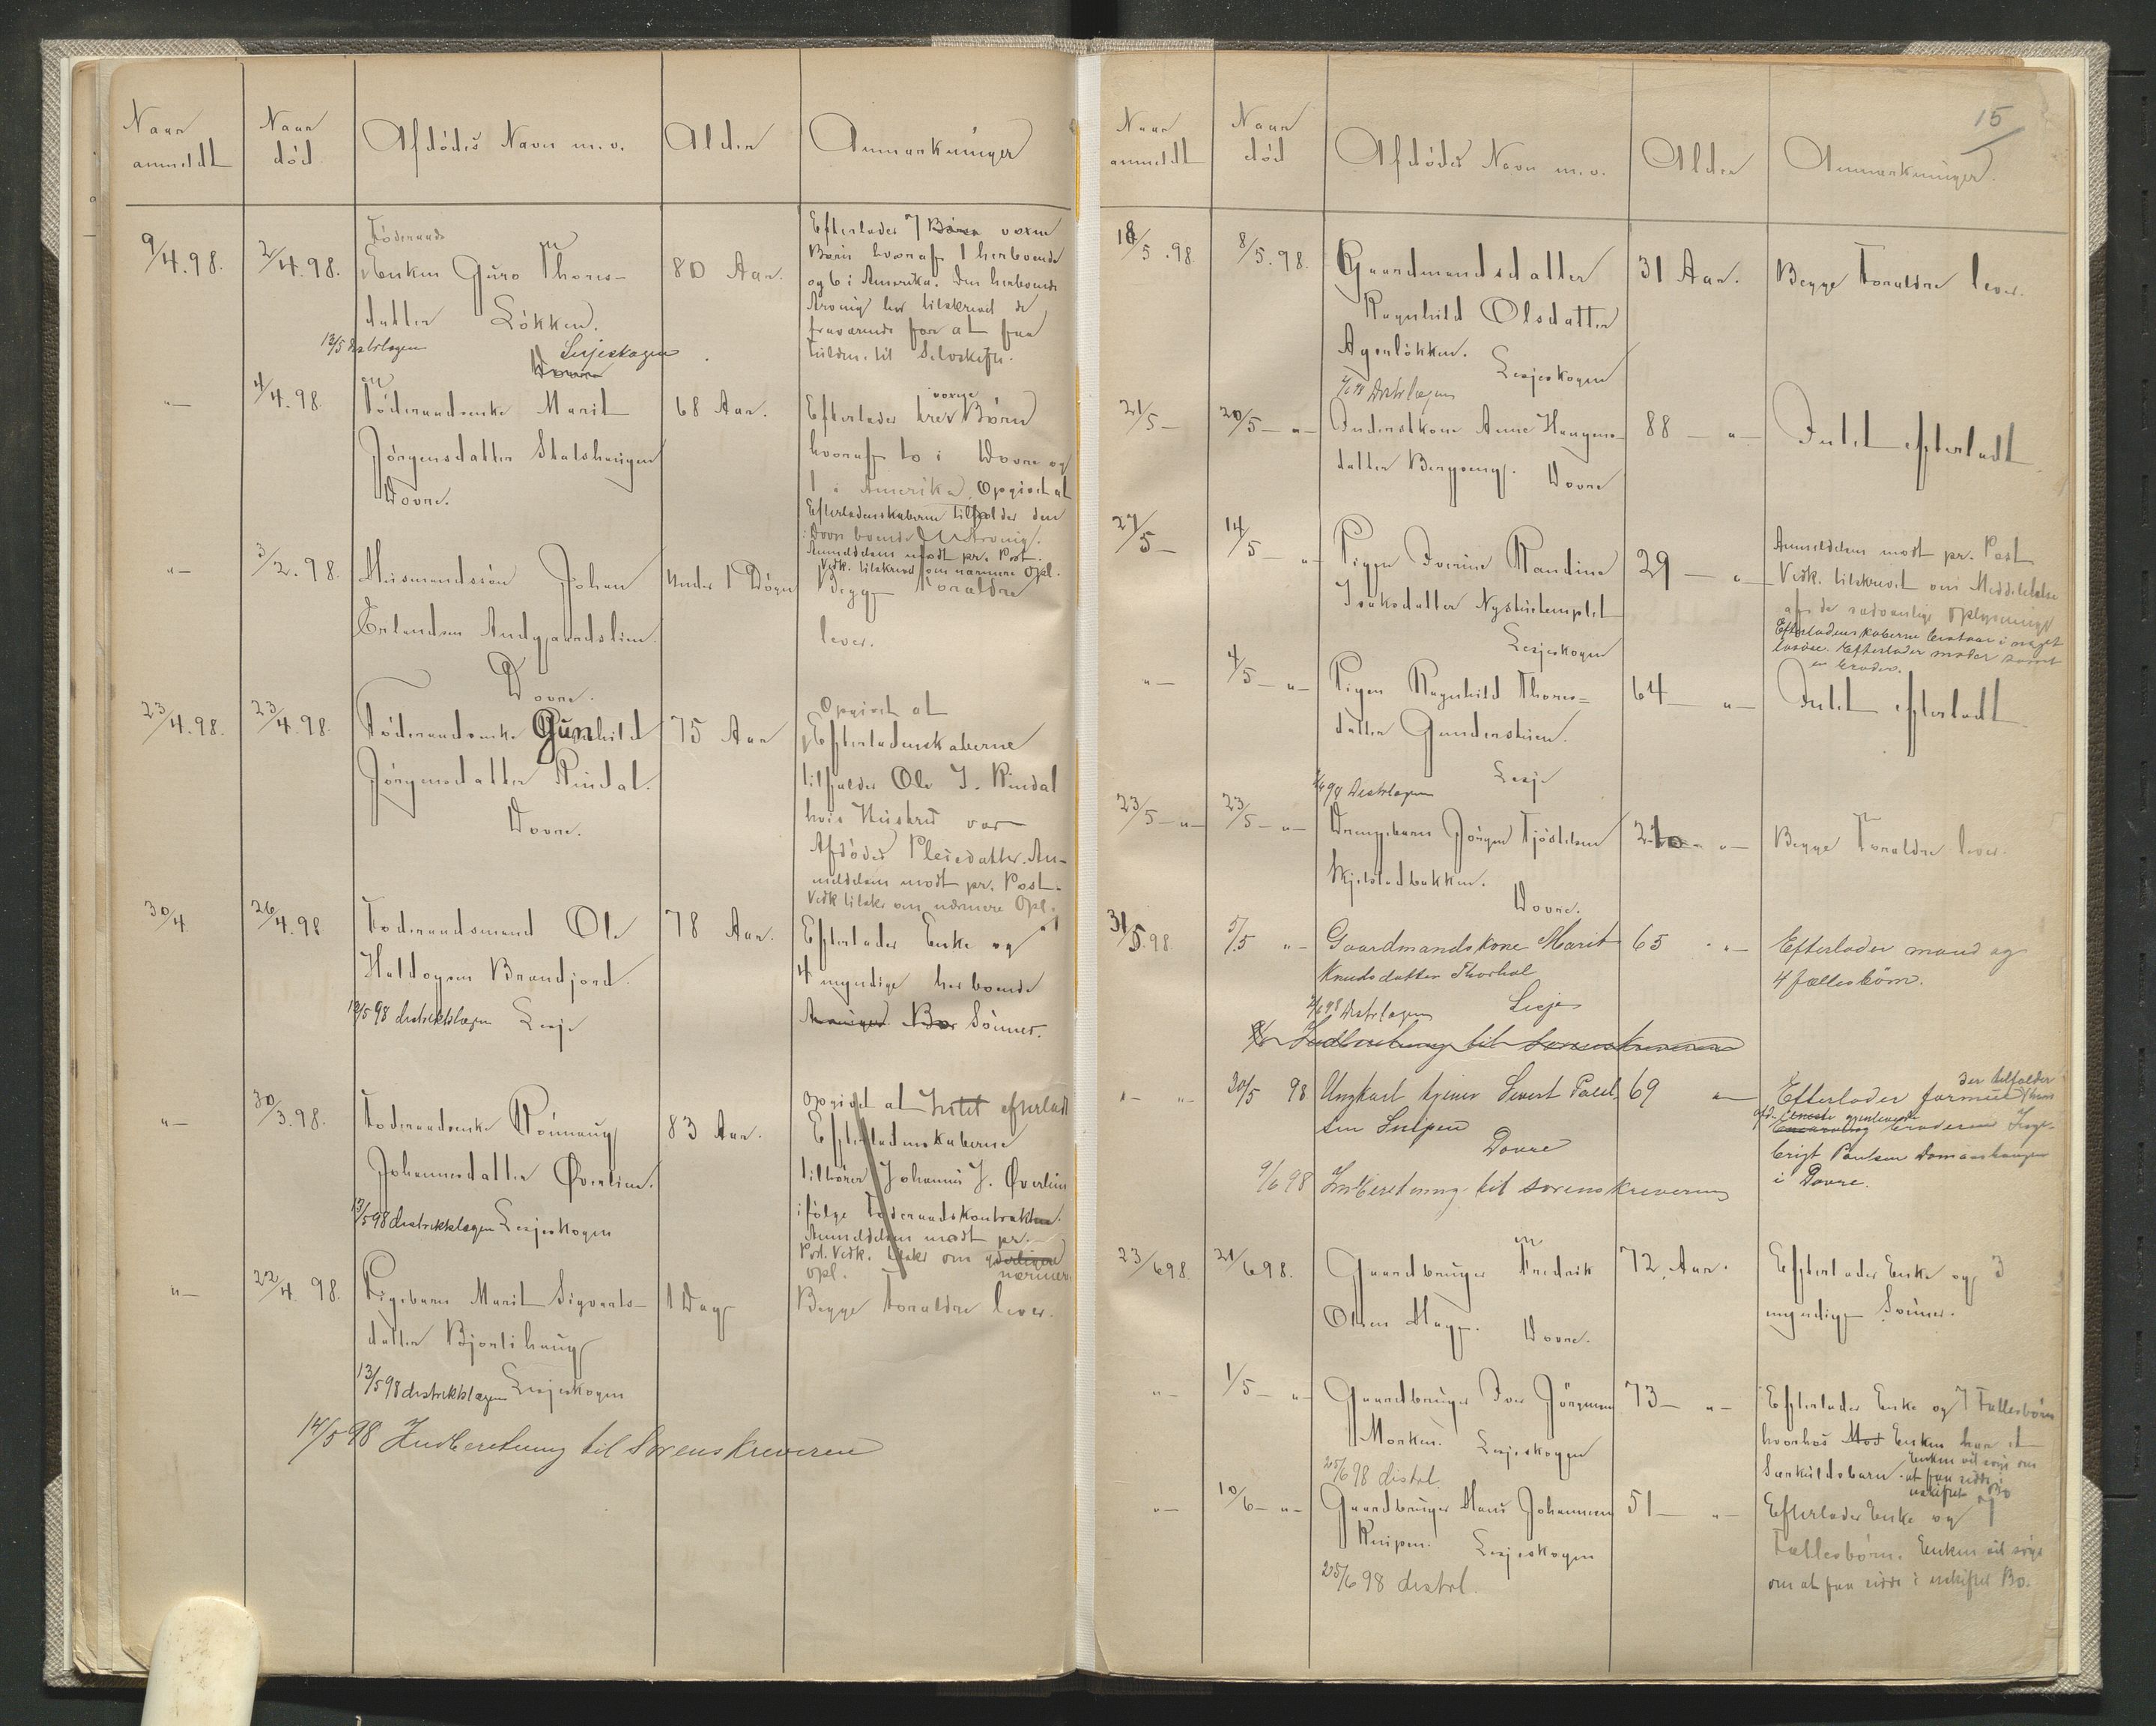 Naar anmeldt
Naar død
Afdødes Navn m.v.
Alder
Anmærkninger
9/4.98.
2/4.98.
Føderaads
Enken Guro Thores-
datter Løkken.
13/5 distrlægen
Lesjeskogen
Dovre
80 Aar.
Efterlader 7 Børn voxne
Børn hvoraf 1 herboende
og 6 i Amerika. Den herboende
Arving har tilskrevet de
fraværende for at faa
Fuldm. til Selvskifte.
"—
4/4.98.
Føderaadsenke Marit
Jørgensdatter Stalshaugen
Dovre.
68 Aar.
voxne
Efterlader trev Børn
hvoraf to i Dovre og
1 i Amerika. Opgivet at
Efterladenskaberne tilfalder den
i Dovre boende Arving.
Anmeldelsen modt pr. Post.
Vedk. tilskrevet om nærmere Opl.
"—
3/2.98.
Husmandssøn Johan
Erlandsen Andgaardslien.
Dovre.
Under 1 Døgn
Begge Foraldre
lever.
23/4.98.
23/4.98.
Føderaadsenke Gunhild
Jørgensdatter Rindal.
Dovre.
75 Aar
Opgivet at
Efterladenskaberne
tilfalder Ole J. Rindal
hvis Hustru var
Afdødes Pleiedatter. An-
meldelsen modt pr. Post.
Vedk tilskr om nærmere Opl.
30/4
26/4.98
Føderaadsmand Ole
Haldogsen Brandjord.
13/5 98 distriktslægen Lesje
78 Aar.
Efterlader Enke og
4 myndige herboende
Arvinger Bor Sønner.
"—
30/3.98.
Føderaadsenke Rønnaug
Johannesdatter Øverlien.
13/5 98 distriktslægen Lesjeskogen
83 Aar.
Opgivet at Intet efterladt
Efterladenskaberne
tilhører Johannes J. Øverlien
ifølge Føderaadskontrakten.
Anmeldelsen modt pr.
Post. Vedk. tilskr om yderligere
opl. nærmere
"—
22/4 98.
Pigebarn Marit Sigvarts-
datter Bjorlihaug
13/5 98 distriktslægen Lesjeskogen
1 Dag
Begge Foraldre lever.
14/5 98 Indberetning til Sorenskriveren
15
Naar anmeldt
Naar død
Afdødes Navn m.v.
Alder
Anmærkninger.
18/5.98.
8/5.98.
Gaardmandsdatter
Ragnhild Olsdatter
Agerløkken.
Lesjeskogen
2/6 98 Distrlægen
31 Aar.
Begge Foraldre lever.
21/5—
20/5— "—
Inderstkone Anne Haagens-
datter Bergseng. Dovre
88 — "—
Intet efterladt
27/5—
14/5— "—
Pigen Iverine Randine
Isaksdatter Nystuetemplet
Lesjeskogen
29 — "—
Anmeldelsen modt pr. Post
Vedk. tilskrevet om Meddelelse
af de sædvanlige oplysninger
Efterladenskaberne bestaar i noget
løsøre. Efterlader moder samt
en broder.
"—
4/5— "—
Pigen Ragnhild Thores-
datter Gunderstuen.
Lesje
2/6 98 Distrlægen
64 — "—
Intet efterladt
23/5— "—
23/5— "—
Drengebarn Jørgen Tjøstelsen
Skjelstadbakken.
Dovre.
"—
Begge Foraldre lever.
31/5.98.
5/5 "—
Gaardmandskone Marit
Knudsdatter Thorhol
2/6 98 Distrlægen Lesje
65 "—
Efterlader mand og
4 fællesbørn.
Indberetning til Sorenskriveren
"— "
30/5 98
Ungkarl tjener Sivert Paul-
sen Snipen
Dovre
69 "—
Efterlader formue der tilfalder
afd. eneste gjenlevende broderen Inge-
brigt Paulsen Domaashaugen
i Dovre.
9/6 98 Indberetning til sorenskriveren
23/6 98.
21/6 98.
Gaardbruger Fredrik
Olsen Hage. Dovre.
72 Aar.
Efterlader Enke og 3
myndige Sønner.
"—
1/5— "—
Gaardbruger Iver Jørgensen
Morken. Lesjeskogen
25/6 98 distrl.
73— "—
Efterlader Enke og 7 Fællesbørn
hvorhos Mod Enken har et
Særkuldsbarn. Enken vil søge om
at faa sidde i
uskiftet Bo
"—
10/6— "—
Gaardbruger Hans Johannesen
Knipen. Lesjeskogen
25/6 98 distrl.
51— "—
Efterlader Enke og 7
Fællesbørn. Enken vil søge
om at faa sidde i uskiftet Bo.